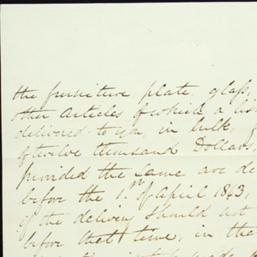 the furniture plate, glass,
other articles of which a li
delivered to you, in bulk,
of twelve thousand Dollars,
provided the same are de
before the 1st of April 1843,
if the delivery should not
before that time, in the